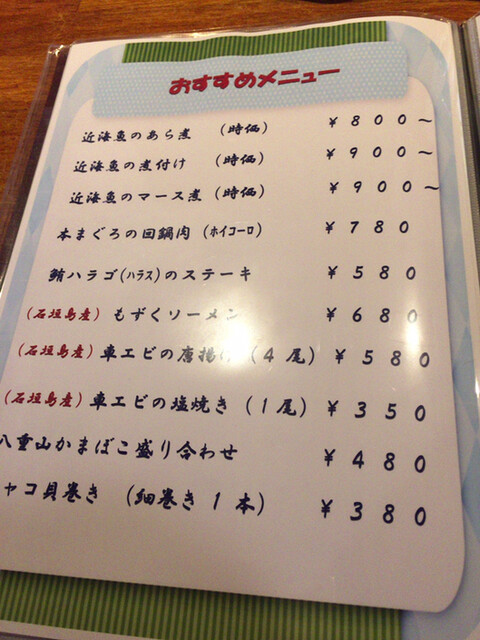 おすすめメニュー
近海魚のあら煮 (時価) ¥800~
近海魚の煮付け (時価) ¥900~
近海魚のマース煮 (時価) ¥900~
本まぐろの回鍋肉 (ホイコーロ) ¥780
鮪ハラゴ(ハラス)のステーキ ¥580
(石垣島産) もずくソーメン ¥680
(石垣島産) 車エビの唐揚げ (4尾) ¥580
(石垣島産) 車エビの塩焼き (1尾) ¥350
八重山かまぼこ盛り合わせ ¥480
ャコ貝巻き (細巻き1本) ¥380